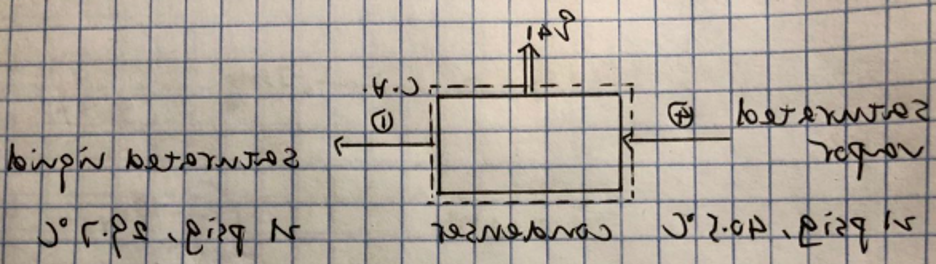 ④
①
saturated
vapor
saturated liquid
psig, 40.5 °C
condenser
psig, 29.7 °C